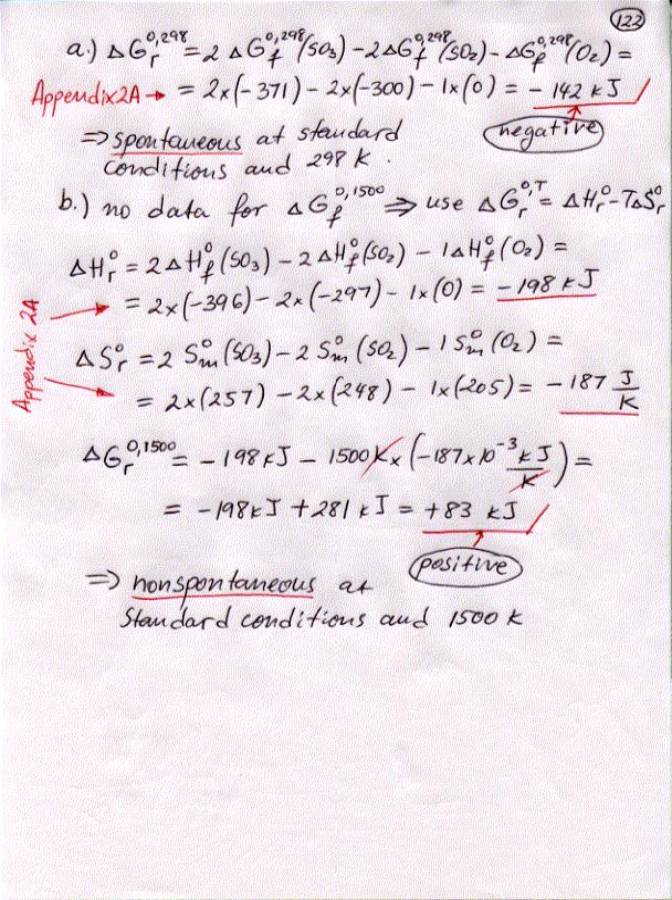 122
a.) ΔG_r^{0,298} = 2 ΔG_f^{0,298}(SO₃) – 2ΔG_f^{0,298}(SO₂) – ΔG_f^{0,298}(O₂) =
Appendix 2A → = 2×(-371) – 2×(-300) – 1×(0) = – 142 kJ
⇒ spontaneous at standard negative
conditions and 298 K.
b.) no data for ΔG_f^{0,1500} ⇒ use ΔG_r^{0,T} = ΔH_r^0 - TΔS_r^0
ΔH_r^0 = 2ΔH_f^0(SO₃) – 2ΔH_f^0(SO₂) – 1ΔH_f^0(O₂) =
= 2×(-396) – 2×(-297) – 1×(0) = – 198 kJ
Appendix 2A
ΔS_r^0 = 2 S_m^0(SO₃) – 2 S_m^0(SO₂) – 1 S_m^0(O₂) =
= 2×(257) – 2×(248) – 1×(205) = – 187 J/K
ΔG_r^{0,1500} = – 198 kJ – 1500 K × (–187×10⁻³ kJ/K) =
= – 198 kJ + 281 kJ = +83 kJ
positive
⇒ nonspontaneous at
standard conditions and 1500 K